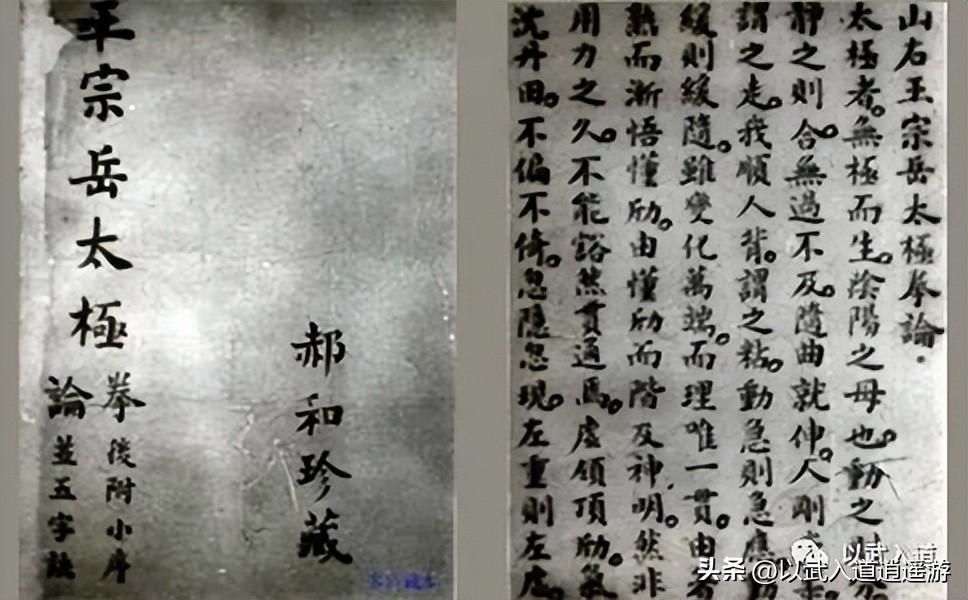 王宗岳太極
拳後附小序
論並五字訣
郝和珍藏
山右王宗岳太極拳論。
太極者。無極而生。陰陽之母也。動之則分
靜之則合。無過不及。隨曲就伸。人剛
謂之走。我順人背。謂之粘。動急則急應
緩則緩隨。雖變化萬端。而理唯一貫。由着
熟而漸悟懂劤。由懂劤而階及神明。然非
用力之久。不能豁然貫通焉。虛領頂劤。氣
沈丹田。不偏不倚。忽隱忽現。左重則左虛。
以武入道
头条 @以武入道逍遥游